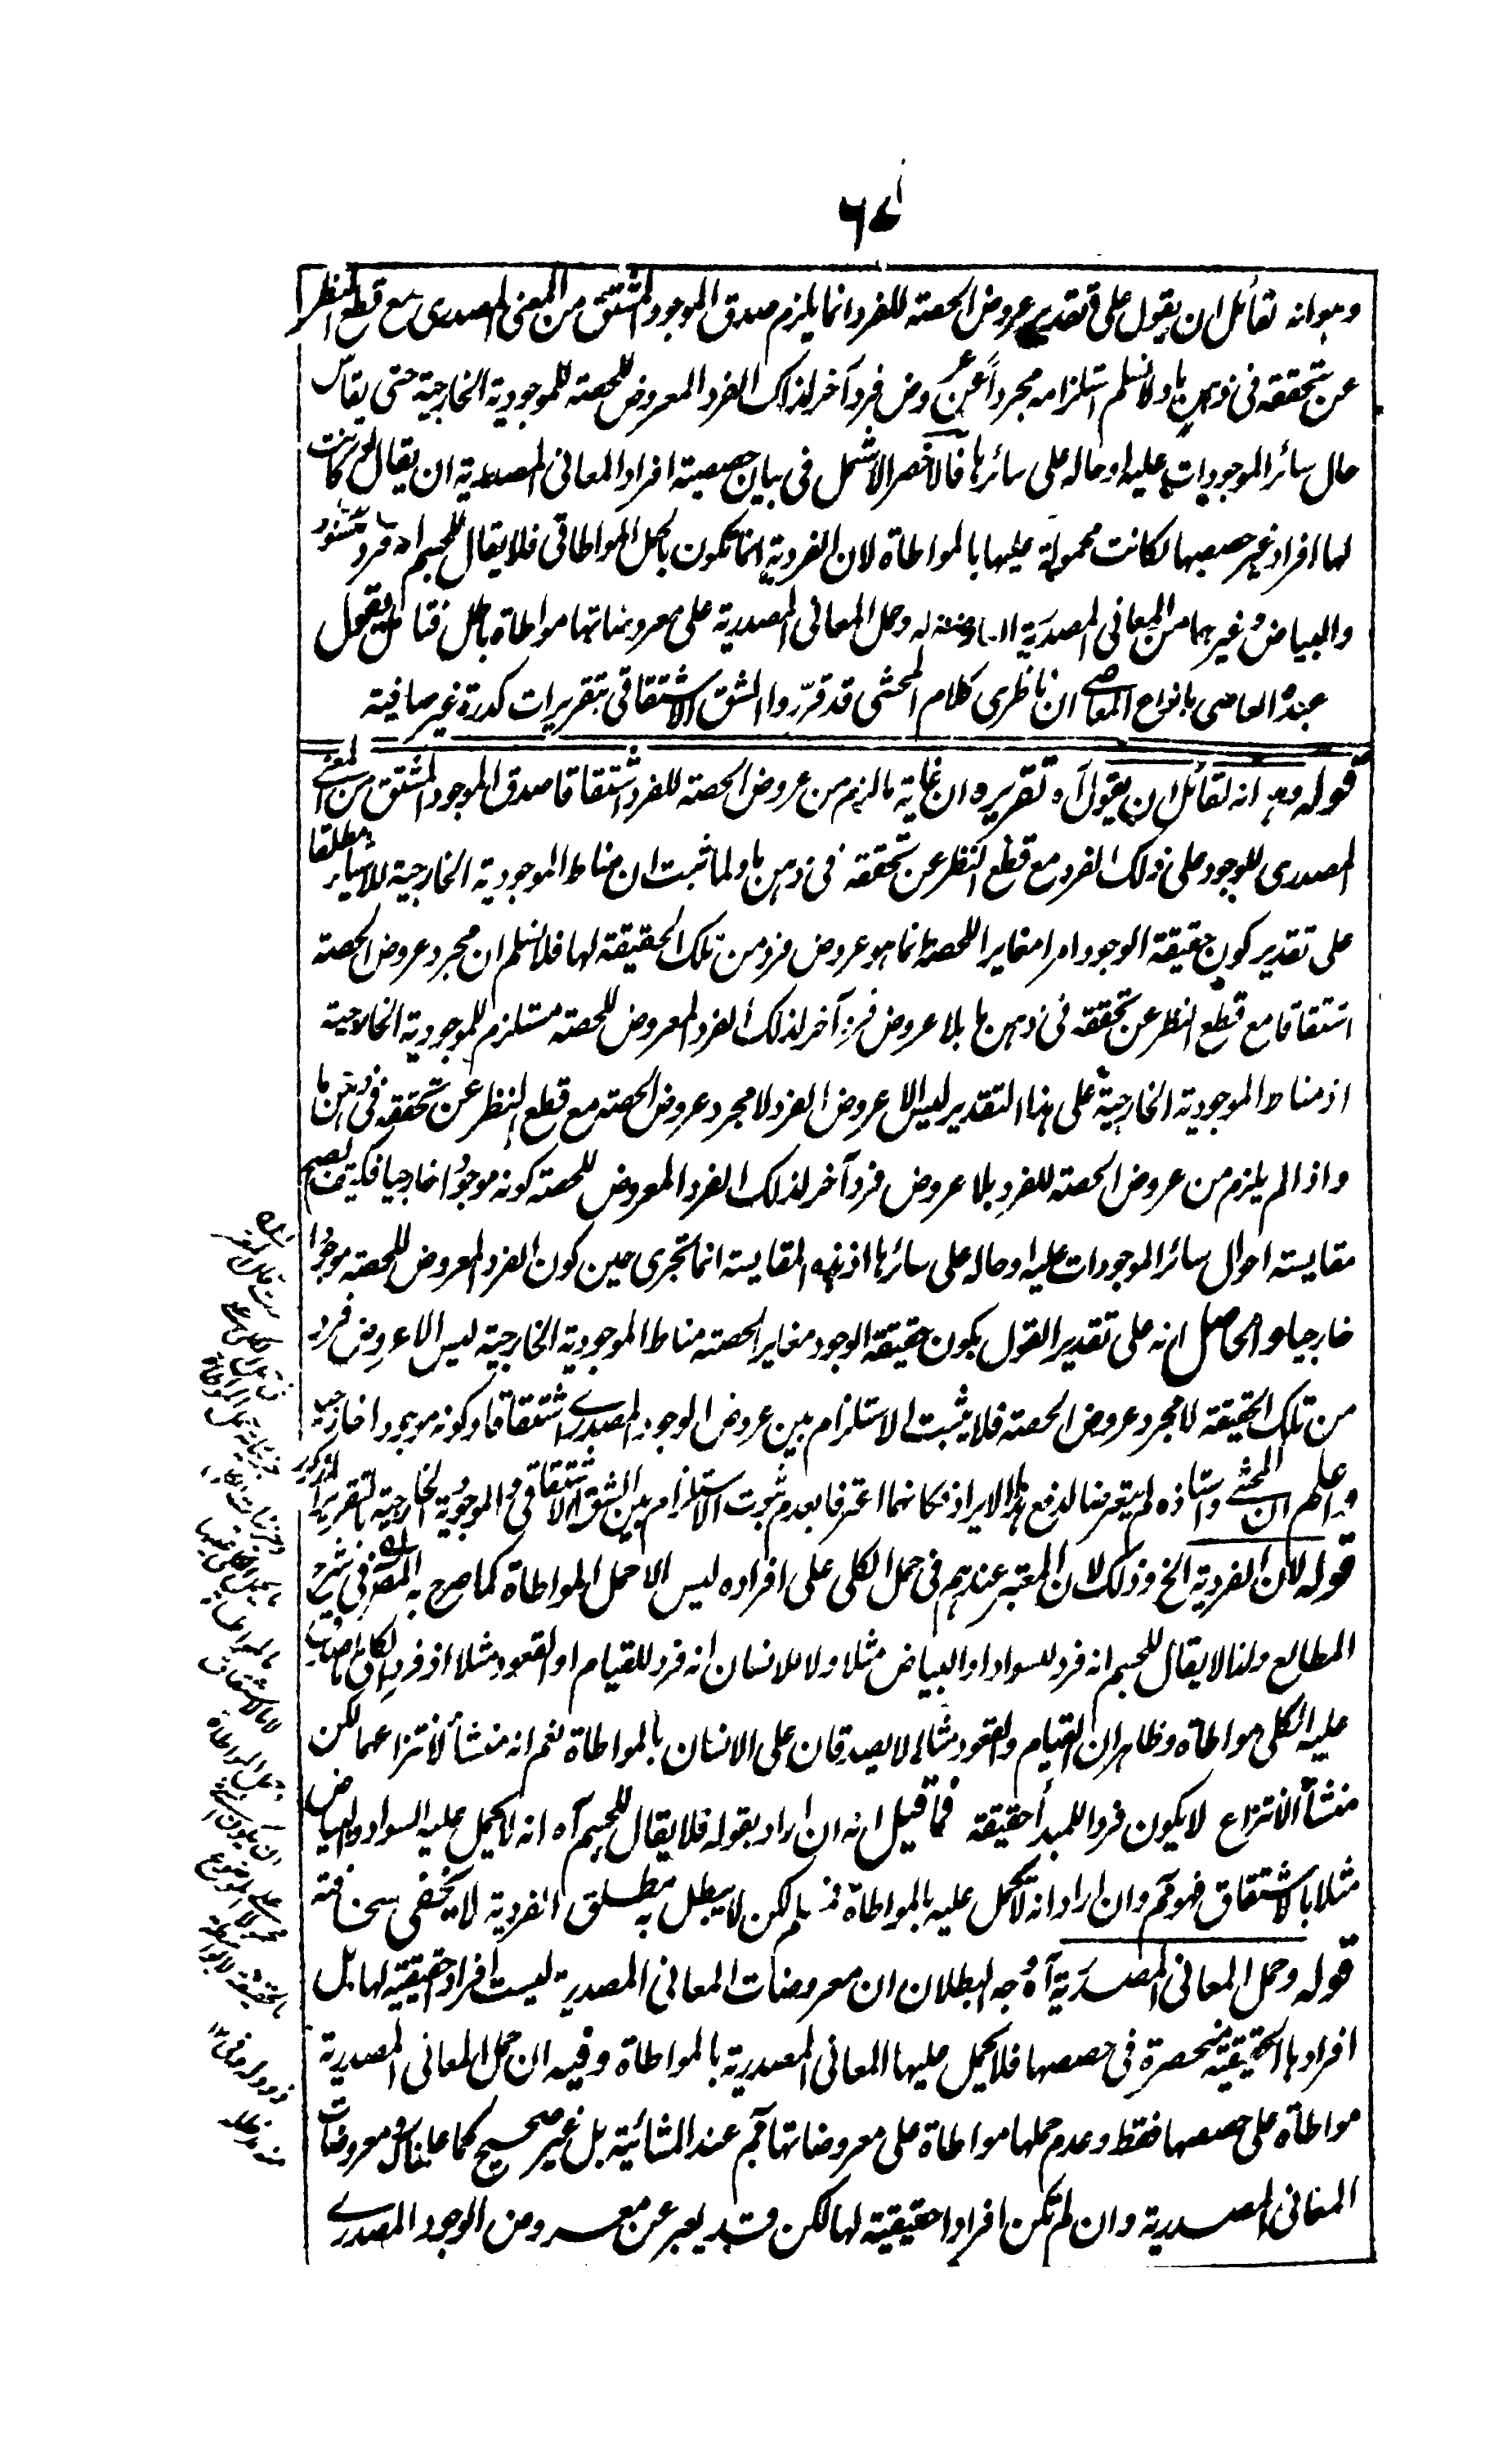 ٦٧
وهو انه لقائل ان يقول على تقدير عروض الحصته للفرد انما يلزم صدق الموجود المشتق من المعنى المصدرى مع قطع النظر
عن تحققه فى ذهن ما ولا نسلم استلزامه مجرداً عن عروض فرد آخر لذاك الفرد المعروض للحصته للموجودية الخارجية حتى يقاس
حال سائر الموجودات عليه او حاله على سائرها فالاخصر الاشمل فى بيان حصصية افراد المعانى المصدرية ان يقال لو كانت
لها افراد غير حصصها لكانت محمولة عليها بالمواطاة لان الفردية انما تكون بالحمل المواطاتى فلا يقال للجسم انه فرد للسواد
والبياض وغيرهما من المعانى المصدرية العارضة له وحمل المعانى المصدرية على معروضاتها مواطاة باطل فتامل يقول
عبده العاصى بانواع المعاصى ان ناظرى كلام المحشى قد قرروا الشق الاشتقاقى بتقريرات كدرة غير صافية
قوله وهو انه لقائل ان يقول آه تقريره ان غاية ما لزم من عروض الحصته للفرد اشتقاقا صدق الموجود المشتق من المعنى
المصدرى للوجود على ذلك الفرد مع قطع النظر عن تحققه فى ذهن ما ولما ثبت ان مناط الموجودية الخارجية للاشياء مطلقا
على تقدير كون حقيقة الوجود امرا مغايرا للحصته انما هو عروض فرد من تلك الحقيقة لها فلا نسلم ان مجرد عروض الحصته
اشتقاقا مع قطع النظر عن تحققه فى ذهن ما بلا عروض فرد آخر لذلك الفرد المعروض للحصته مستلزم للموجودية الخارجية
اذ مناط الموجودية الخارجية على هذا التقدير ليس الا عروض الفرد لا مجرد عروض الحصته مع قطع النظر عن تحققه فى ذهن ما
واذا لم يلزم من عروض الحصته للفرد بلا عروض فرد آخر لذلك الفرد المعروض للحصته كونه موجودا خارجيا فكيف تصح
مقايسته احوال سائر الموجودات عليه او حاله على سائرها اذ هذه المقايسته انما تجرى حين كون الفرد المعروض للحصته موجودا
خارجيا والحاصل انه على تقدير القول بكون حقيقة الوجود مغاير الحصته مناط الموجودية الخارجية ليس الا عروض فرد
من تلك الحقيقة لا مجرد عروض الحصته فلا يثبت الاستلزام بين عروض الوجود المصدرى اشتقاقا وكونه موجودا خارجيا
واعلم ان المحشى واستاذه لم يتعرضا لدفع هذا الايراد فكانهما اعترفا بعدم ثبوت الاستلزام بين الشق الاشتقاقى والموجودية الخارجية بالتقرير المذكور
قوله لان الفردية الخ وذلك لان المعتبر عندهم فى حمل الكلى على افراده ليس الا حمل المواطاة كما صرح به المصنف فى شرح
المطالع ولذا لا يقال للجسم انه فرد للسواد او البياض مثلا ولا للانسان انه فرد للقيام او القعود مثلا اذ فرد الكلى ما يصدق
عليه الكلى مواطاة وظاهر ان القيام والقعود مثلا لا يصدقان على الانسان بالمواطاة نعم انه منشأ لانتزاعهما لكن
منشأ الانتزاع لا يكون فردا للمبدأ حقيقة فما قيل انه ان اراد بقوله فلا يقال للجسم آه انه لا يحمل عليه السواد والبياض
مثلا بالاشتقاق فهو مم وان اراد انه لا يحمل عليه بالمواطاة فمسلم لكن لا يبطل به مطلق الفردية لا يخفى سخافته
قوله وحمل المعانى المصدرية آه وجه البطلان ان معروضات المعانى المصدرية ليست افراد حقيقية لها بل
افرادها الحقيقية منحصرة فى حصصها فلا يحمل عليها المعانى المصدرية بالمواطاة وفيه ان حمل المعانى المصدرية
مواطاة على حصصها فقط وعدم حملها مواطاة على معروضاتها مم عند المشائية بل غير صحيح كما علمت ومعروضات
المعانى المصدرية وان لم تكن افرادا حقيقية لها لكن قد يعبر عن معروض الوجود المصدرى